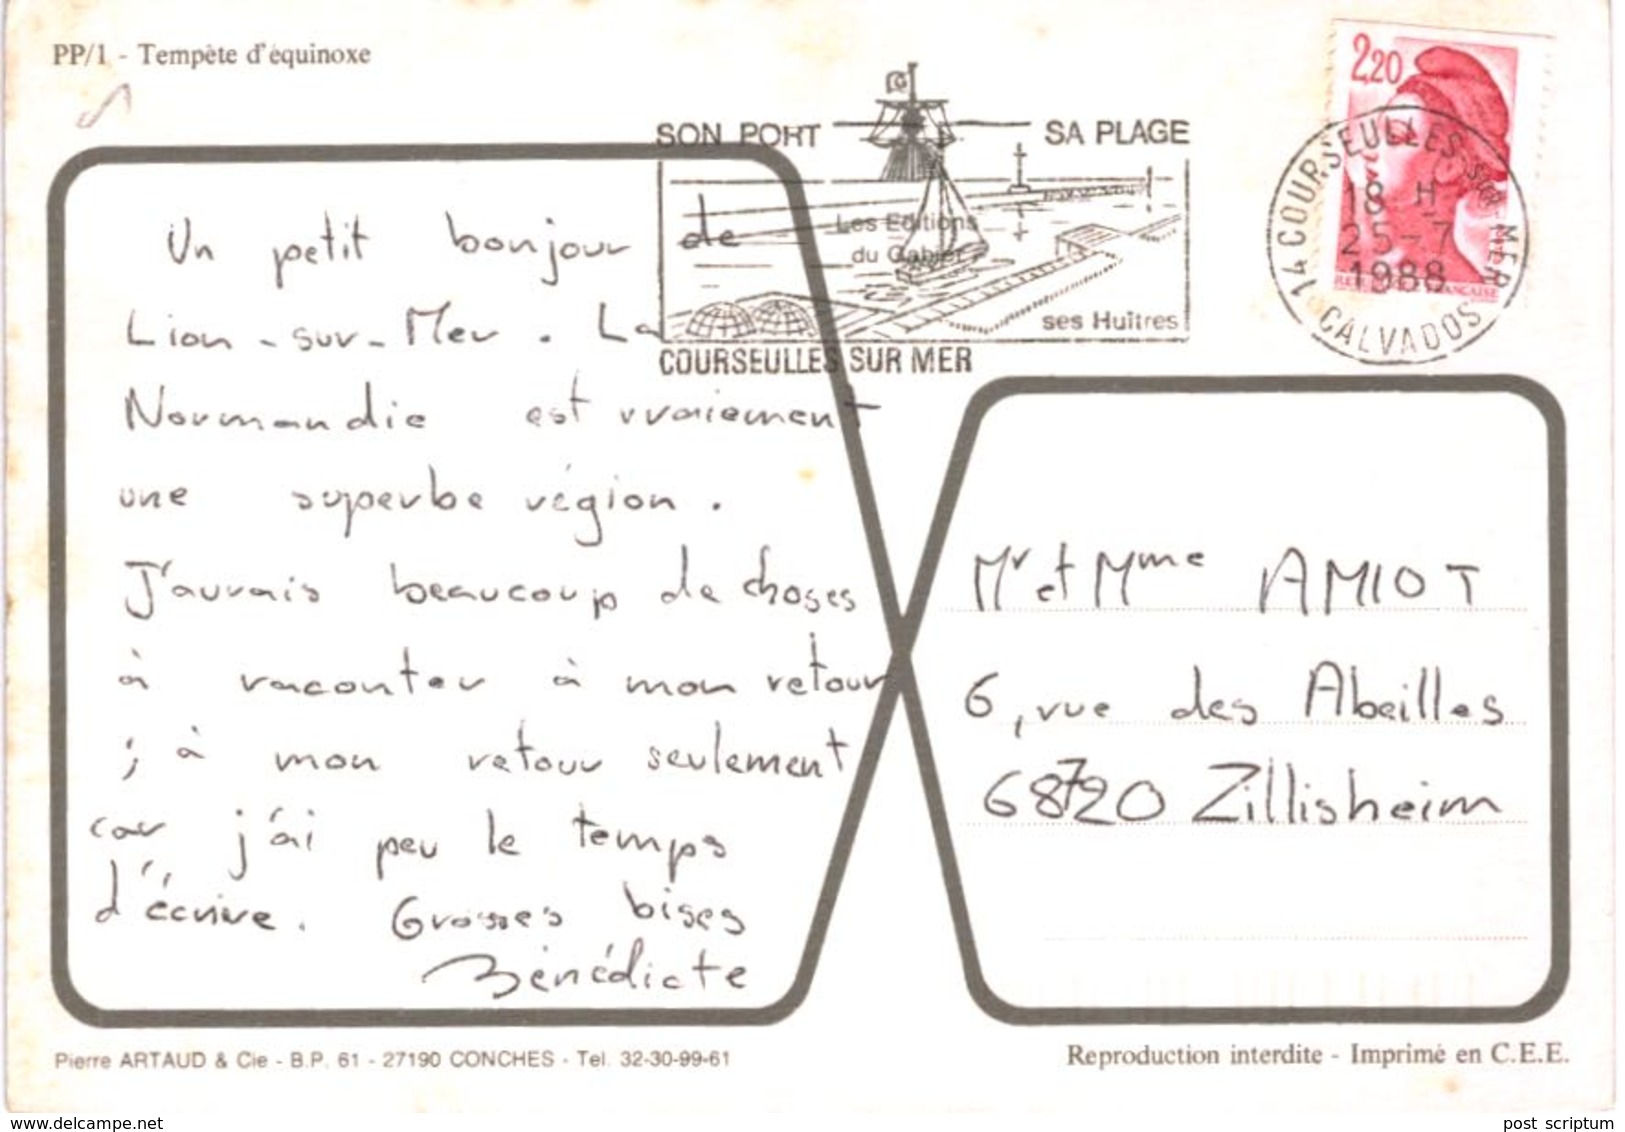 PP/1 - Tempête d'équinoxe
SON PORT
SA PLAGE
Les Editions
du Gabier
ses Huîtres
COURSEULLES SUR MER
2,20
14 COURSEULLES-SUR-MER
18 H
25-7
1988
CALVADOS
Un petit bonjour de
Lion-sur-Mer. La
Normandie est vraiement
une superbe région.
J'aurais beaucoup de choses
à raconter à mon retour
; à mon retour seulement
car j'ai peu le temps
d'écrire. Grosses bises
Bénédicte
Mr et Mme AMIOT
6, rue des Abeilles
68720 Zillisheim
Pierre ARTAUD & Cie - B.P. 61 - 27190 CONCHES - Tel. 32-30-99-61
Reproduction interdite - Imprimé en C.E.E.
www.delcampe.net
post scriptum